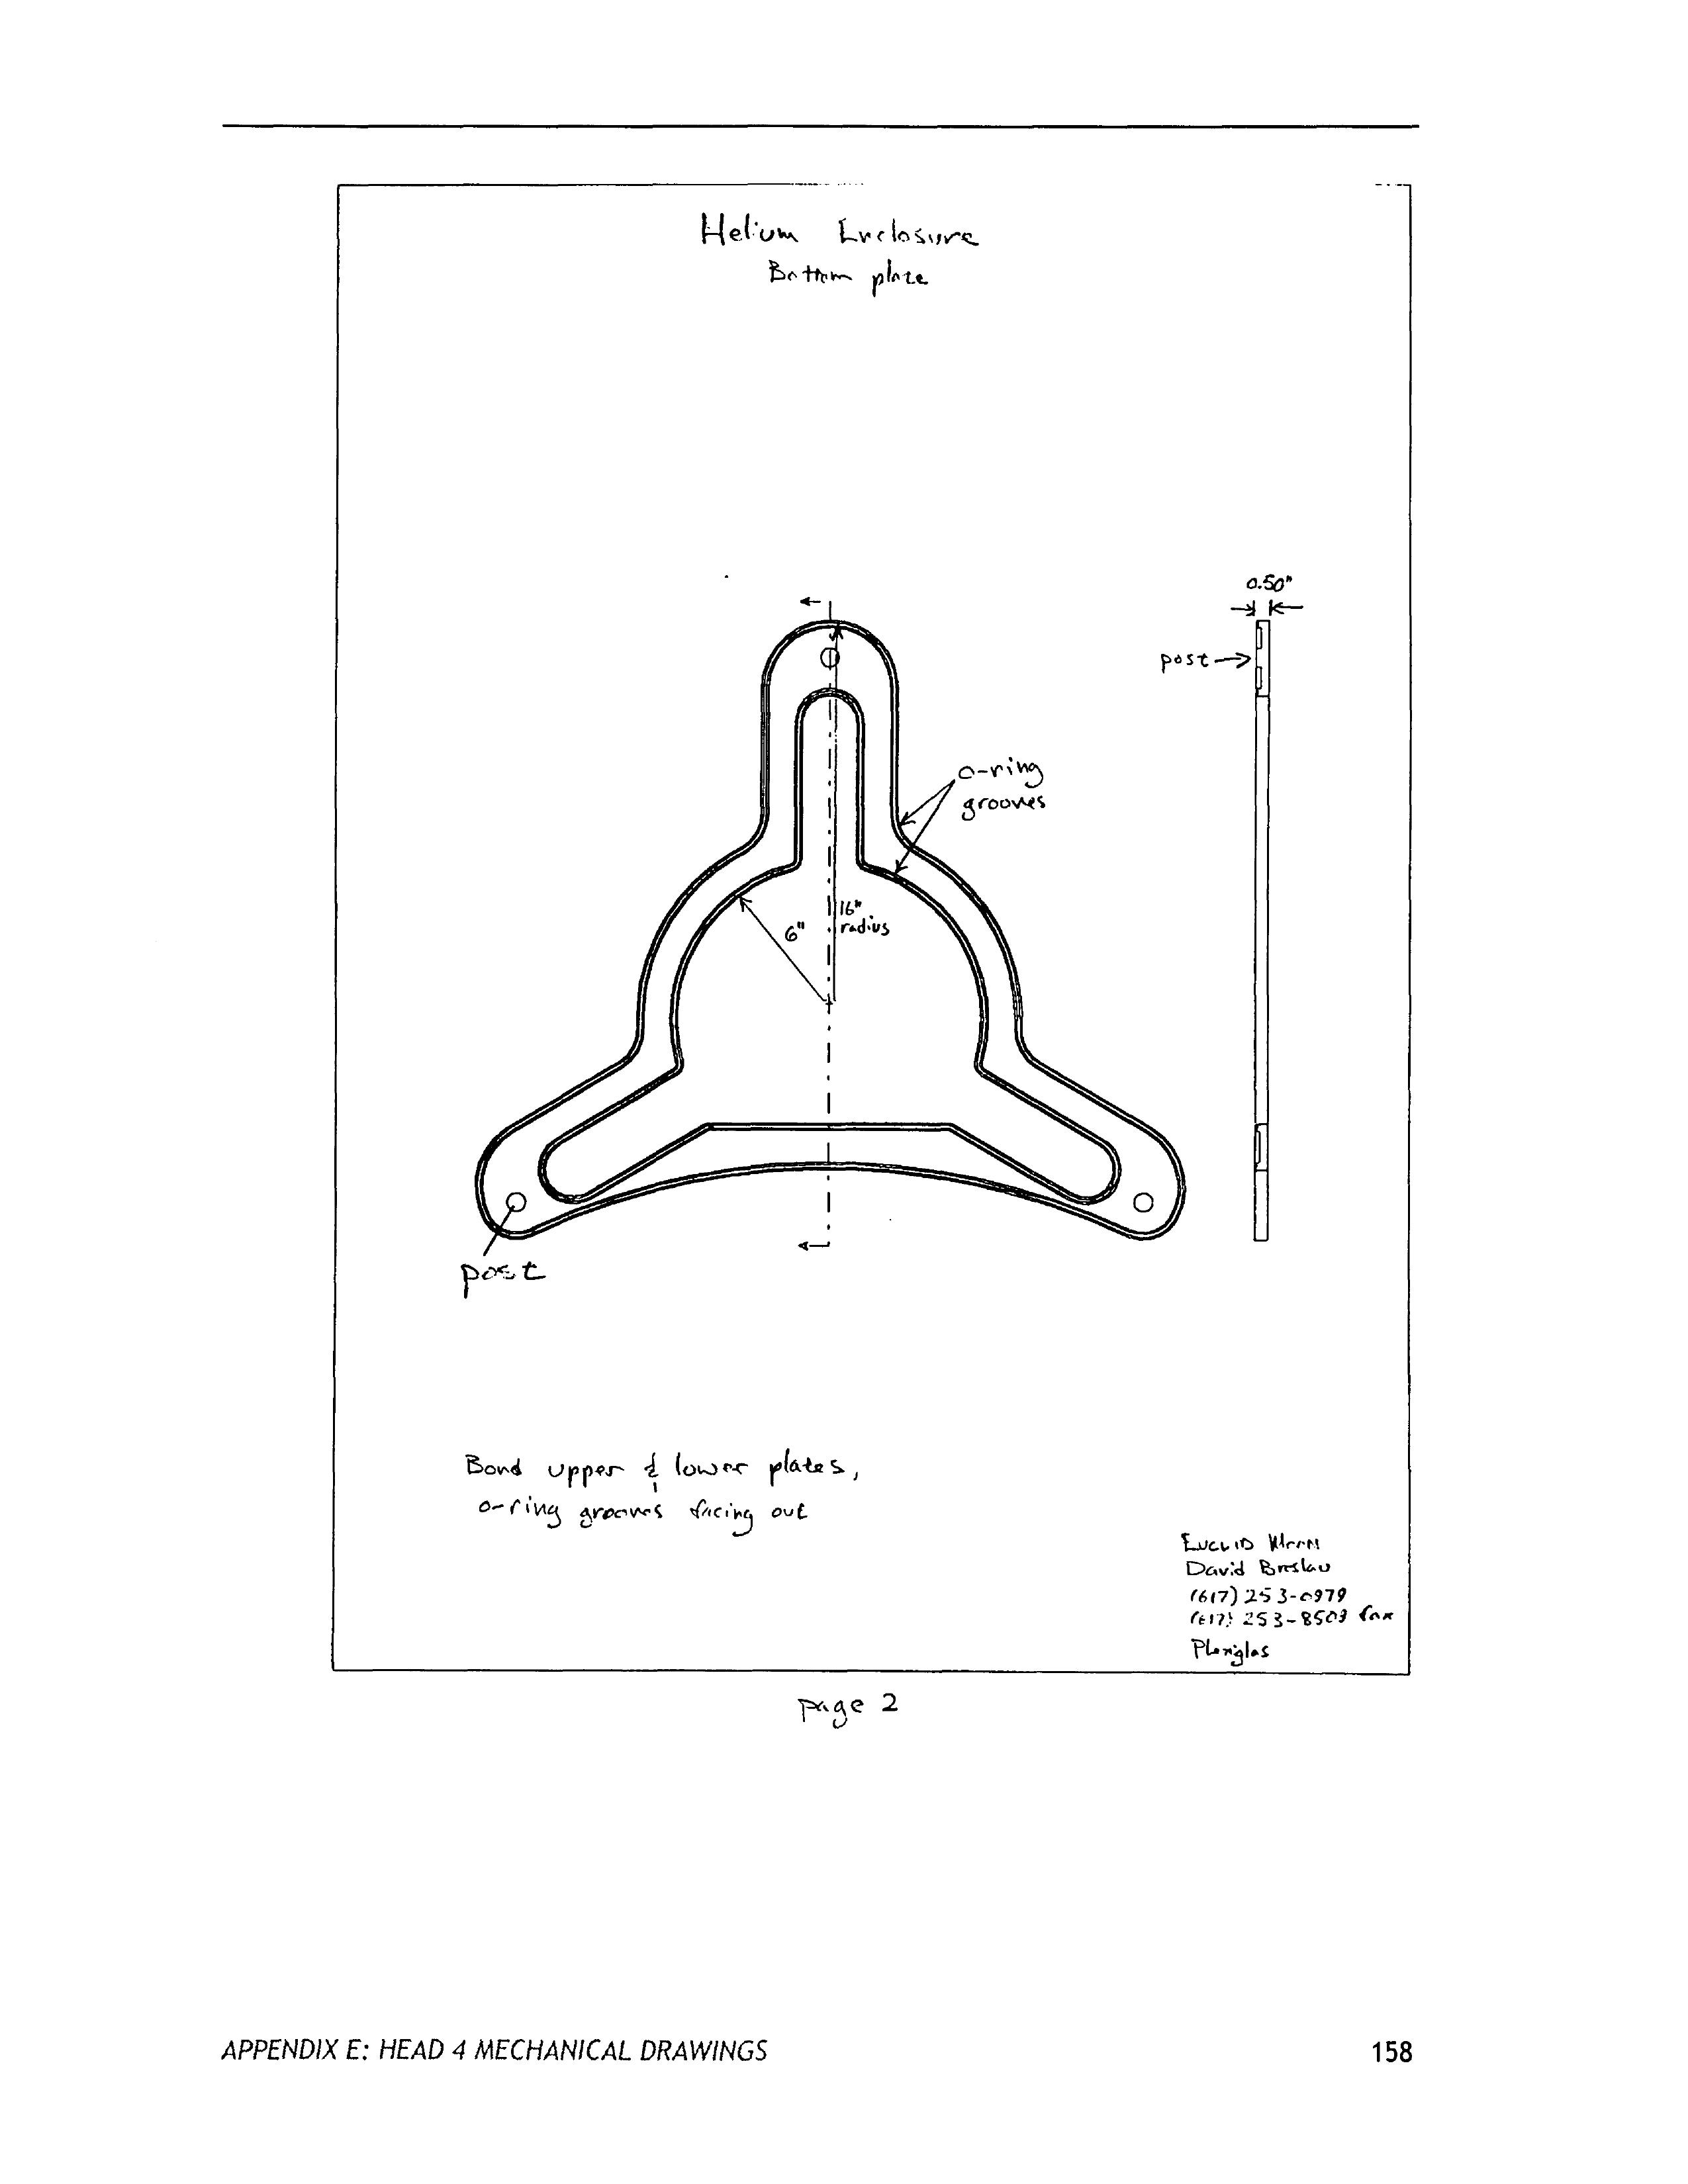 Helium Enclosure
Bottom plate
0.50"
post
o-ring
grooves
16"
radius
6"
post
Bond upper & lower plates,
o-ring grooves facing out
EUCLID
David Breslau
(617) 253-0979
(617) 253-8509 fax
Plexiglas
page 2
APPENDIX E: HEAD 4 MECHANICAL DRAWINGS
158